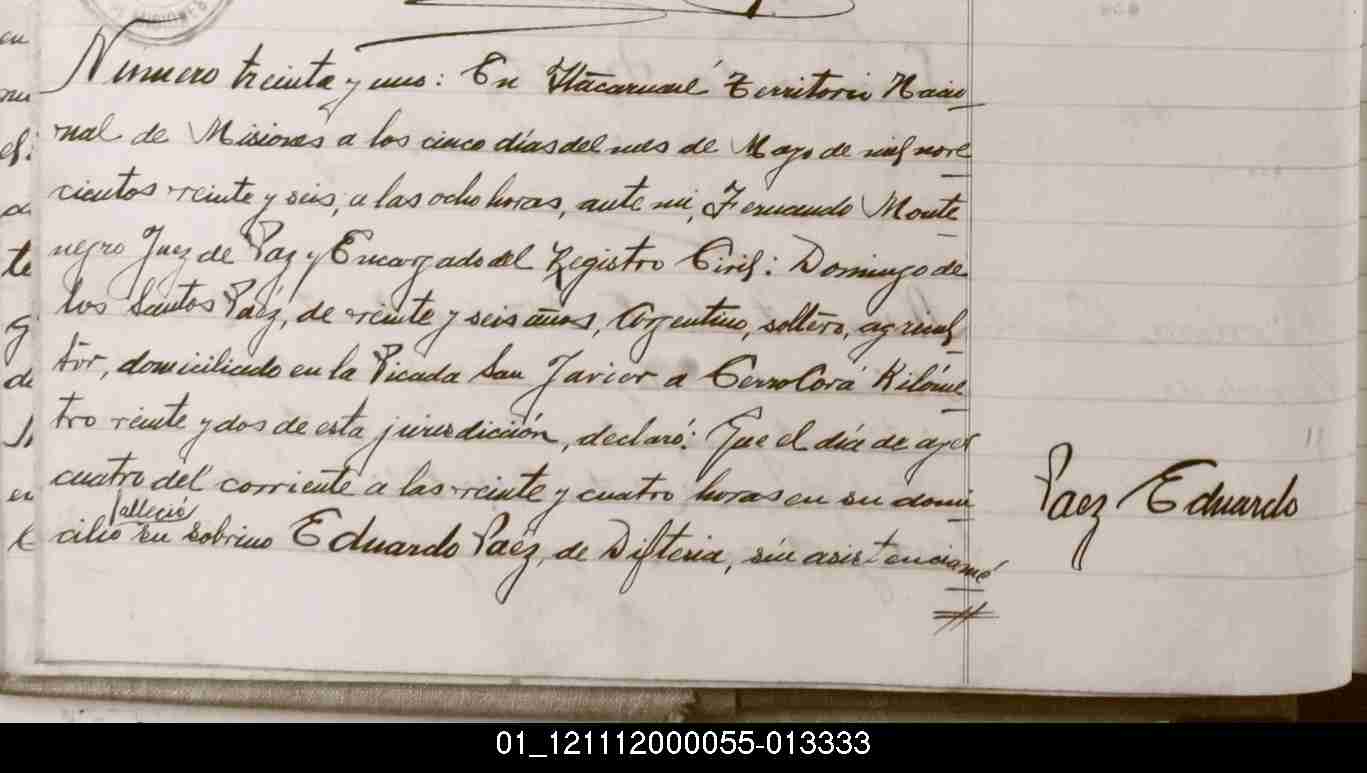 Numero treinta y uno: En Itacaruaré Territorio Nacio
nal de Misiones a los cinco días del mes de Mayo de mil nove
cientos veinte y seis, a las ocho horas, ante mi, Fernando Monte
negro Juez de Paz y Encargado del Registro Civil: Domingo de
los Santos Paéz, de veinte y seis años, Argentino, soltero, agricul
tor, domiciliado en la Picada San Javier a Cerro Corá Kilóme
tro veinte y dos de esta jurisdicción, declaró: Que el día de ayer
cuatro del corriente a las veinte y cuatro horas en su domi
falleció
cilio su sobrino Eduardo Paéz, de Difteria, sin asistencia mé
Paez Eduardo
01_121112000055-013333